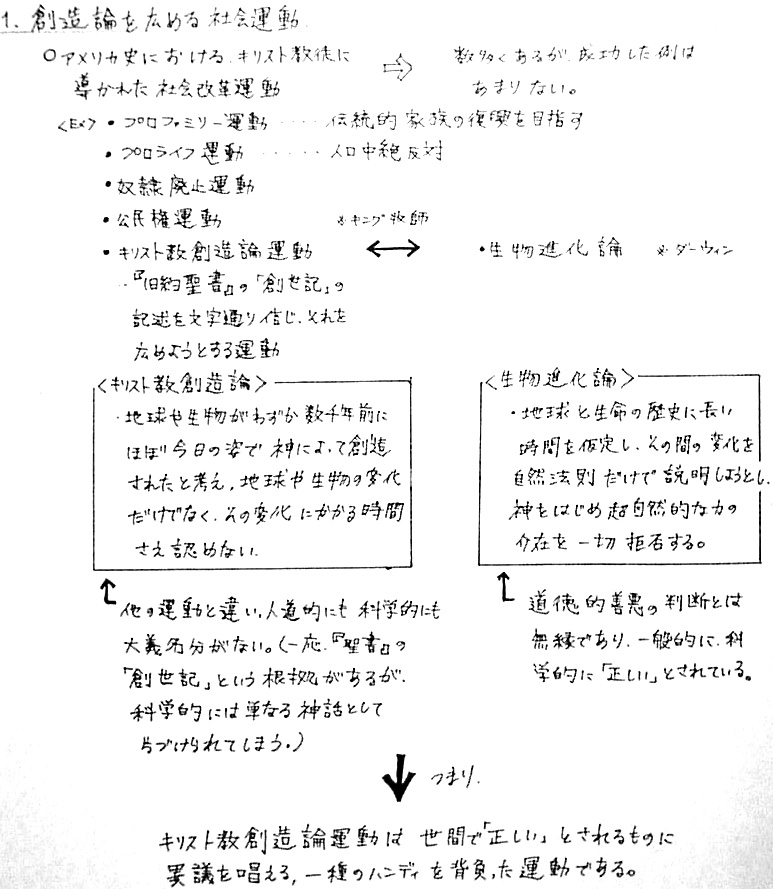 1. 創造論を広める社会運動.
○アメリカ史における、キリスト教徒に
導かれた社会改革運動
⇨
数多くあるが、成功した例は
あまりない。
<Ex> ・プロファミリー運動 ‥‥ 伝統的家族の復興を目指す
・プロライフ運動 ‥‥‥ 人口中絶反対
・奴隷廃止運動
・公民権運動 ※キング牧師
・キリスト教創造論運動 ⟷ ・生物進化論 ※ダーウィン
・『旧約聖書』の「創世記」の
記述を文字通り信じ、それを
広めようとする運動
<キリスト教創造論>
・地球や生物がわずか数千年前に
ほぼ今日の姿で神によって創造
されたと考え、地球や生物の変化
だけでなく、その変化にかかる時間
さえ認めない.
<生物進化論>
・地球と生命の歴史に長い
時間を仮定し、その間の変化を
自然法則だけで説明しようとし、
神をはじめ超自然的な力の
介在を一切拒否する。
↑
他の運動と違い、人道的にも科学的にも
大義名分がない。(一応、『聖書』の
「創世記」という根拠があるが、
科学的には単なる神話として
片づけられてしまう.)
↑
道徳的善悪の判断とは
無縁であり、一般的に、科
学的に「正しい」とされている。
↓ つまり.
キリスト教創造論運動は 世間で「正しい」とされるものに
異議を唱える, 一種のハンディを背負った運動である。